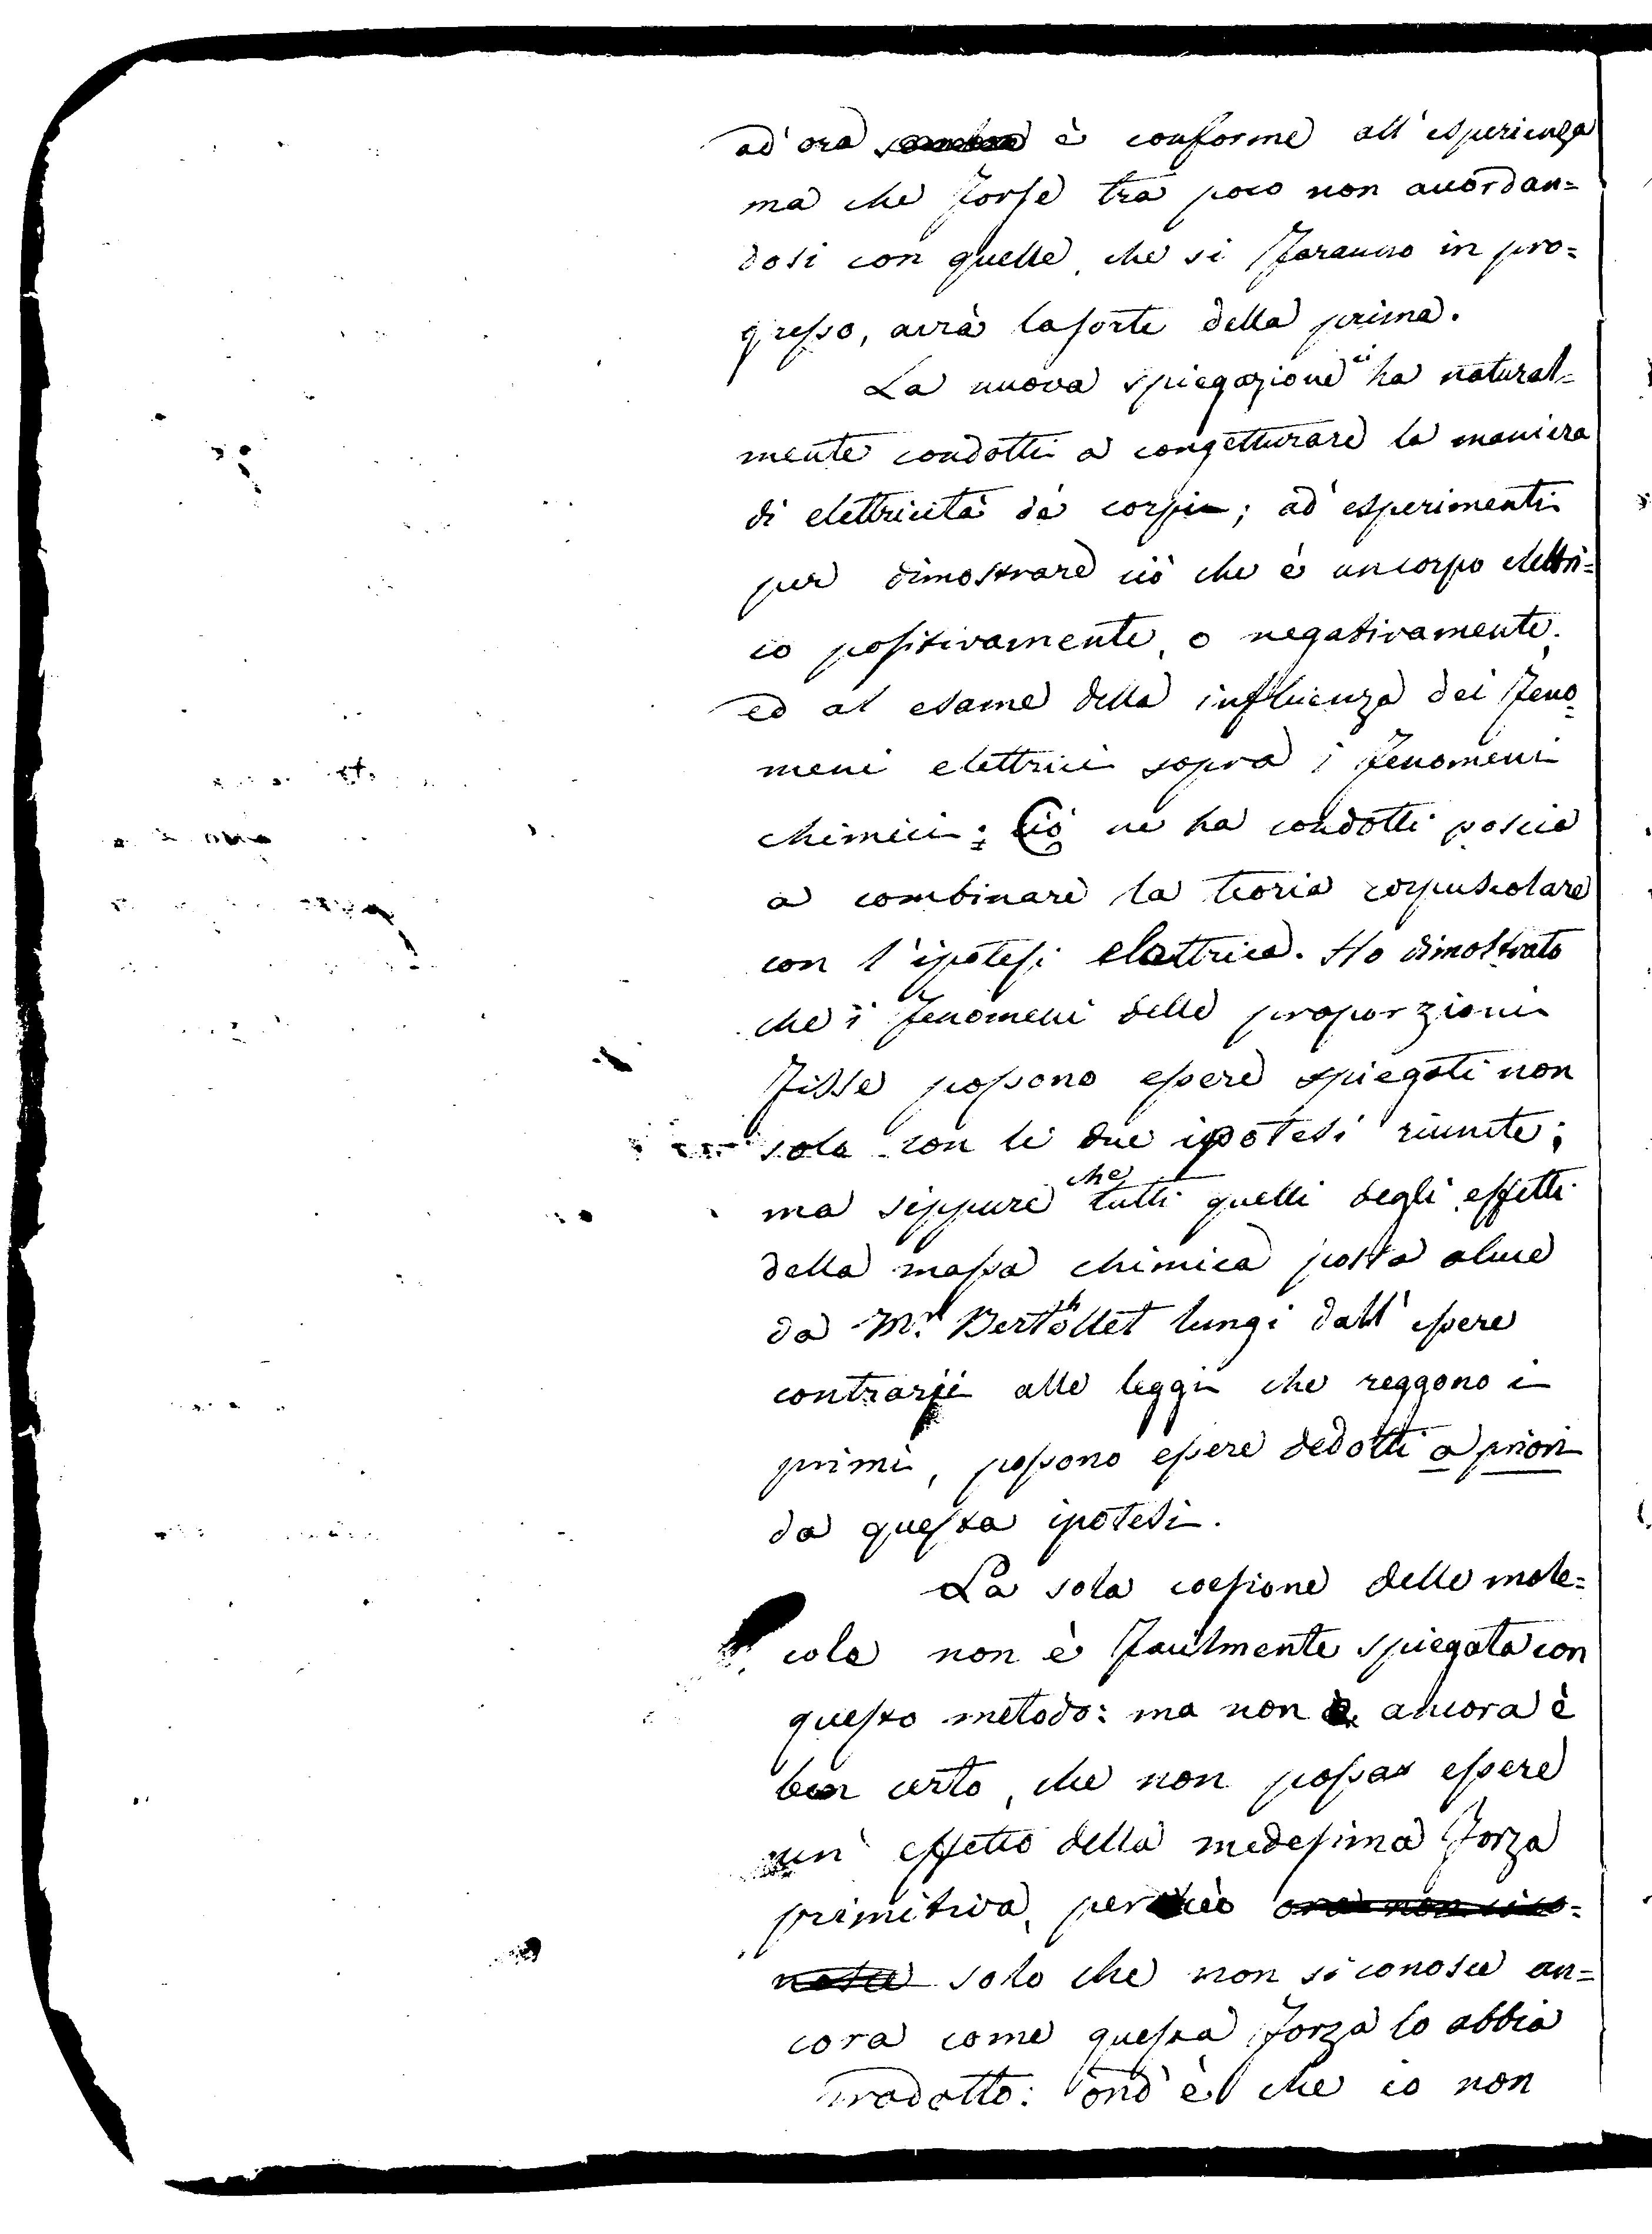 ad'ora è conforme all'esperienza
ma che forse tra poco non accordan=
dosi con quelle, che si faranno in pro=
gresso, avrà la sorte della prima.
La nuova spiegazione ci ha natural=
mente condotti a congetturare la maniera
di elettricità dè corpi; ad esperimenti
per dimostrare ciò che è un corpo elettri=
co positivamente, o negativamente;
ed al esame della influenza dei feno=
meni elettrici sopra i fenomeni
chimici; Ciò ne ha condotti poscia
a combinare la teoria corpuscolare
con l'ipotesi elettrica. Ho dimostrato
che i fenomeni delle proporzioni
fisse possono essere spiegati non
solo con le due ipotesi riunite;
ma sippure che tutti quelli degli effetti
della massa chimica posta aluce
da Mr. Berthollet lungi dall'essere
contrarji alle leggi che reggono i
primi, possono essere dedotti a priori
da questa ipotesi.
La sola coesione delle mole=
cole non è facilmente spiegata con
questo metodo: ma non ancora è
ben certo, che non possa essere
un' effetto della medesima forza
primitiva, perciò ora non si co=
nosce solo che non si conosce an=
cora come questa forza lo abbia
prodotto: ond'è che io non